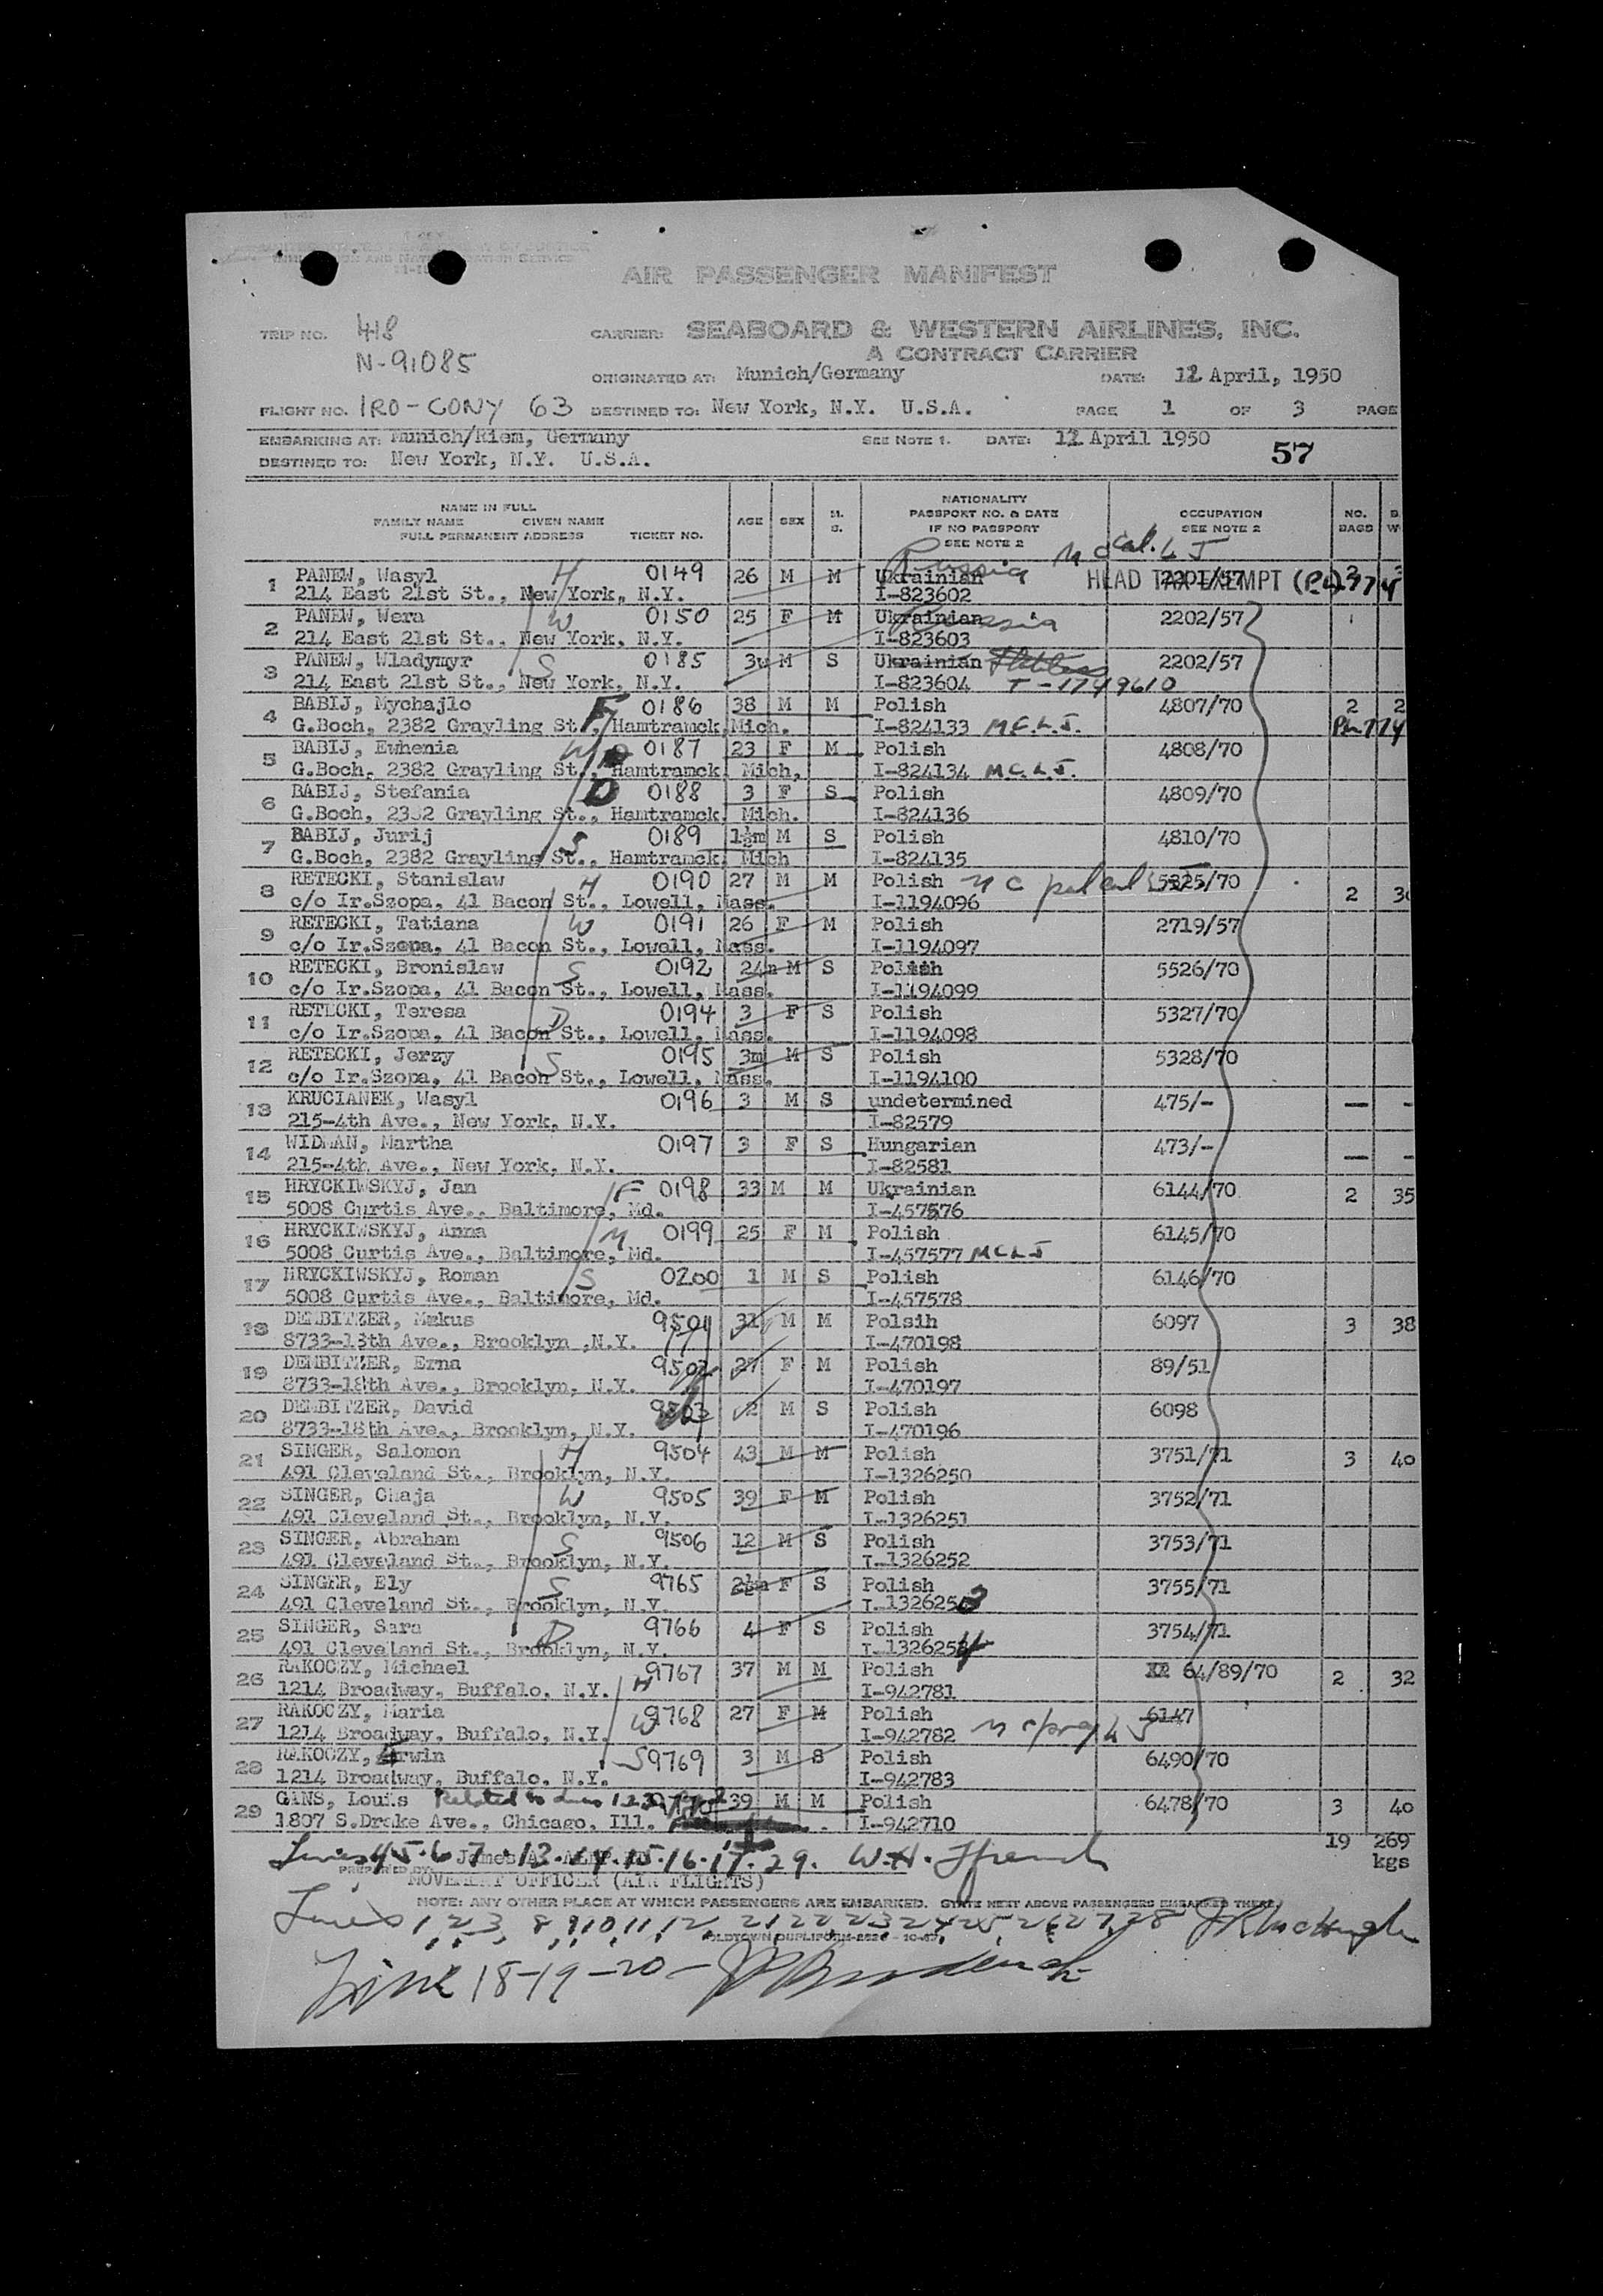 AIR PASSENGER MANIFEST
TRIP NO. 418 CARRIER: SEABOARD & WESTERN AIRLINES, INC.
N-91085 A CONTRACT CARRIER
ORIGINATED AT: Munich/Germany DATE: 12 April, 1950
FLIGHT NO. IRO-CONY 63 DESTINED TO: New York, N.Y. U.S.A. PAGE 1 OF 3 PAGE
EMBARKING AT: Munich/Riem, Germany SEE NOTE 1. DATE: 12 April 1950
DESTINED TO: New York, N.Y. U.S.A. 57
NAME IN FULL
FAMILY NAME GIVEN NAME
FULL PERMANENT ADDRESS TICKET NO. AGE SEX M. S. NATIONALITY
PASSPORT NO. & DATE
IF NO PASSPORT
SEE NOTE 2 OCCUPATION
SEE NOTE 2 NO.
BAGS
Russia
HEAD TAX EXEMPT (PL 774
1 PANEW, Wasyl H 0149 26 M M Ukrainian 2201/57 2
214 East 21st St., New York, N.Y. I-823602
2 PANEW, Wera W 0150 25 F M Ukrainian Russia 2202/57
214 East 21st St., New York, N.Y. I-823603
3 PANEW, Wladymyr S 0185 3 M S Ukrainian 2202/57
214 East 21st St., New York, N.Y. I-823604 T-1749610
4 BABIJ, Mychajlo F 0186 38 M M Polish 4807/70 2 2
G.Boch, 2382 Grayling St., Hamtramck Mich. I-824133 M.C.L.J. PL774
5 BABIJ, Ewhenia W 0187 23 F M Polish 4808/70
G.Boch, 2382 Grayling St., Hamtramck, Mich, I-824134 M.C.L.J.
6 BABIJ, Stefania D 0188 3 F S Polish 4809/70
G.Boch, 2382 Grayling St., Hamtramck, Mich. I-824136
7 BABIJ, Jurij S 0189 1½m M S Polish 4810/70
G.Boch, 2382 Grayling St., Hamtramck, Mich I-824135
8 RETECKI, Stanislaw H 0190 27 M M Polish 5325/70
c/o Ir.Szopa, 41 Bacon St., Lowell, Mass. I-1194096 2 30
9 RETECKI, Tatiana W 0191 26 F M Polish 2719/57
c/o Ir.Szopa, 41 Bacon St., Lowell, Mass. I-1194097
10 RETECKI, Bronislaw S 0192 24m M S Polish 5526/70
c/o Ir.Szopa, 41 Bacon St., Lowell, Mass. I-1194099
11 RETECKI, Teresa D 0194 3 F S Polish 5327/70
c/o Ir.Szopa, 41 Bacon St., Lowell, Mass. I-1194098
12 RETECKI, Jerzy S 0195 3m M S Polish 5328/70
c/o Ir.Szopa, 41 Bacon St., Lowell, Mass. I-1194100
13 KRUCIANEK, Wasyl 0196 3 M S undetermined 475/- — -
215-4th Ave., New York, N.Y. I-82579
14 WIDMAN, Martha 0197 3 F S Hungarian 473/- — -
215-4th Ave., New York, N.Y. I-82581
15 HRYCKIWSKYJ, Jan F 0198 33 M M Ukrainian 6144/70 2 35
5008 Curtis Ave., Baltimore, Md. I-457576
16 HRYCKIWSKYJ, Anna M 0199 25 F M Polish 6145/70
5008 Curtis Ave., Baltimore, Md. I-457577 MCLJ
17 HRYCKIWSKYJ, Roman S 0200 1 M S Polish 6146/70
5008 Curtis Ave., Baltimore, Md. I-457578
18 DEMBITZER, Makus 9501 31 M M Polsih 6097 3 38
8733-18th Ave., Brooklyn ,N.Y. I-470198
19 DEMBITZER, Erna 9502 27 F M Polish 89/51
8733-18th Ave., Brooklyn, N.Y. I-470197
20 DEMBITZER, David 9503 2 M S Polish 6098
8733-18th Ave., Brooklyn, N.Y. I-470196
21 SINGER, Salomon H 9504 43 M M Polish 3751/71 3 40
491 Cleveland St., Brooklyn, N.Y. I-1326250
22 SINGER, Chaja W 9505 39 F M Polish 3752/71
491 Cleveland St., Brooklyn, N.Y. I-1326251
23 SINGER, Abraham S 9506 12 M S Polish 3753/71
491 Cleveland St., Brooklyn, N.Y. I-1326252
24 SINGER, Ely S 9765 2½ F S Polish 3755/71
491 Cleveland St., Brooklyn, N.Y. I-1326253
25 SINGER, Sara D 9766 4 F S Polish 3754/71
491 Cleveland St., Brooklyn, N.Y. I-1326254
26 RAKOCZY, Michael H 9767 37 M M Polish 64/89/70 2 32
1214 Broadway, Buffalo, N.Y. I-942781
27 RAKOCZY, Maria W 9768 27 F M Polish 6147
1214 Broadway, Buffalo, N.Y. I-942782
28 RAKOCZY, Erwin S 9769 3 M S Polish 6490/70
1214 Broadway, Buffalo, N.Y. I-942783
29 GANS, Louis Related to Lines 39 M M Polish 6478/70 3 40
1807 S.Drake Ave., Chicago, Ill. I-942710
19 269
kgs
Lines 4.5.6.7.13.14.15.16.17.29. W.H. Ffrench
PREPARED BY: James A.
MOVEMENT OFFICER (AIR FLIGHTS)
NOTE: ANY OTHER PLACE AT WHICH PASSENGERS ARE EMBARKED. STATE NEXT ABOVE PASSENGERS EMBARKED THERE.
Lines 1, 2, 3, 8, 9, 10, 11, 12, 21, 22, 23, 24, 25, 26, 27, 28
Line 18-19-20-